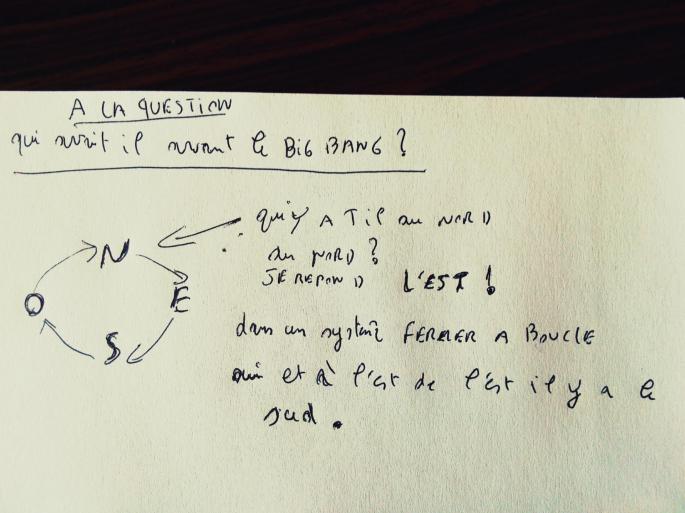 A LA QUESTION
qui avait il avant le BIG BANG ?
N
E
S
O
qu'y A T il au NORD
du NORD ?
JE REPOND L'EST !
dans un système FERMER A BOUCLE
oui et à l'est de l'est il y a le
sud .